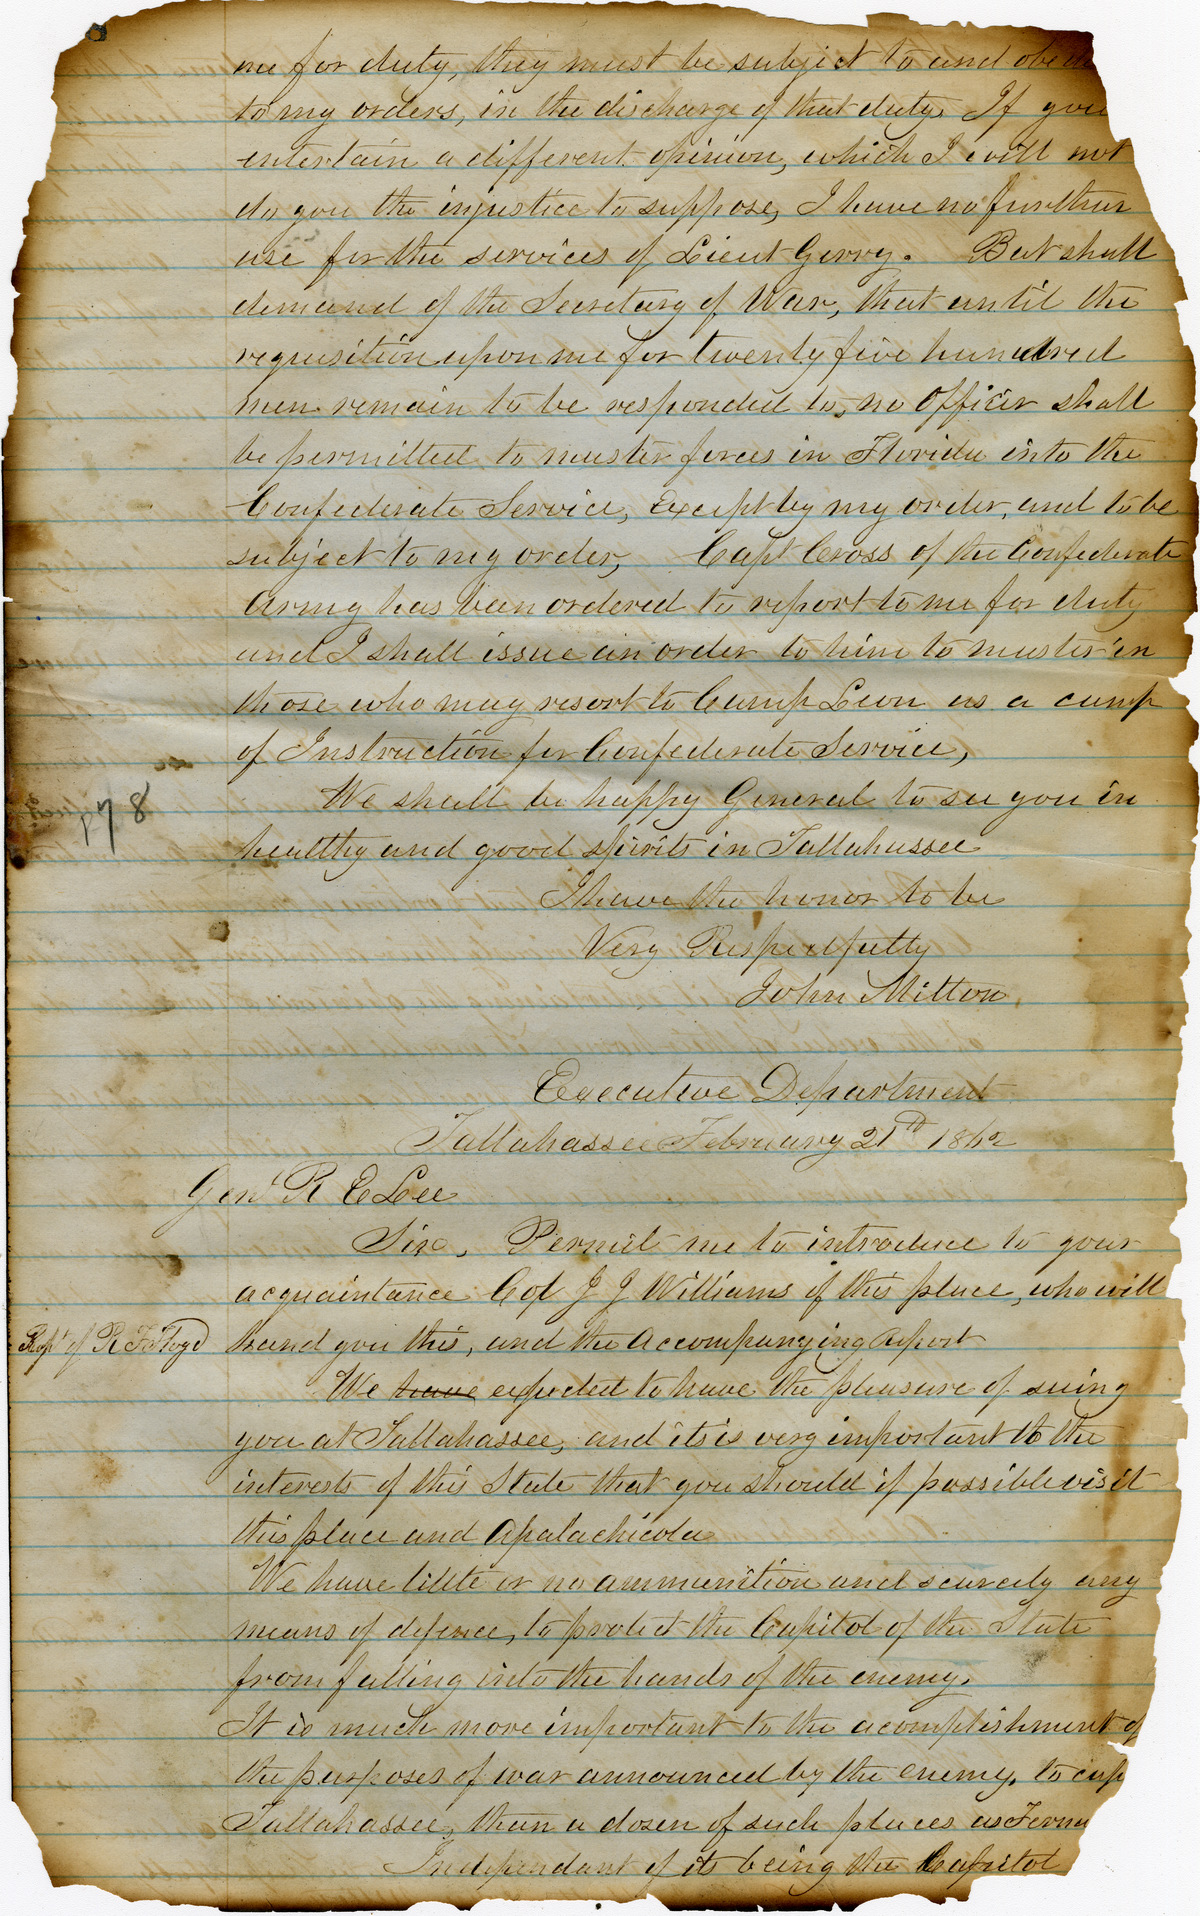 me for duty, they must be subject to and obedi
to my orders, in the discharge of that duty. If you
entertain a different opinion, which I will not
do you the injustice to suppose, I have no further
use for the services of Lieut Gerry. But shall
demand of the Secretary of War, that until the
requisition upon me for twenty five hundred
men remain to be responded to, no officer shall
be permitted to muster forces in Florida into the
Confederate Service, Except by my order, and to be
subject to my order, Capt Cross of the Confederate
Army has been ordered to report to me for duty
and I shall issue an order to him to muster in
those who may resort to Camp Leon as a camp
of Instruction for Confederate Service,
We shall be happy General to see you in
p 78
healthy and good spirits in Tallahassee
I have the honor to be
Very Respectfully
John Milton.
Executive Department
Tallahassee February 21st 1862
Genl R E Lee
Sir, Permit me to introduce to your
acquaintance Col J J Williams of this place, who will
Rept of R F Floyd
hand you this, and the accompanying report
We have expected to have the pleasure of seeing
you at Tallahassee, and it is is very important to the
interests of this State that you should if possible visit
this place and Apalachicola
We have little or no ammunition and scarcely any
means of defence, to protect the Capitol of the State
from falling into the hands of the enemy.
It is much more important to the acomplishment of
the purposes of war announced by the enemy, to cap
Tallahassee, than a dosen of such places as Ferna
Independant of its being the Capitol